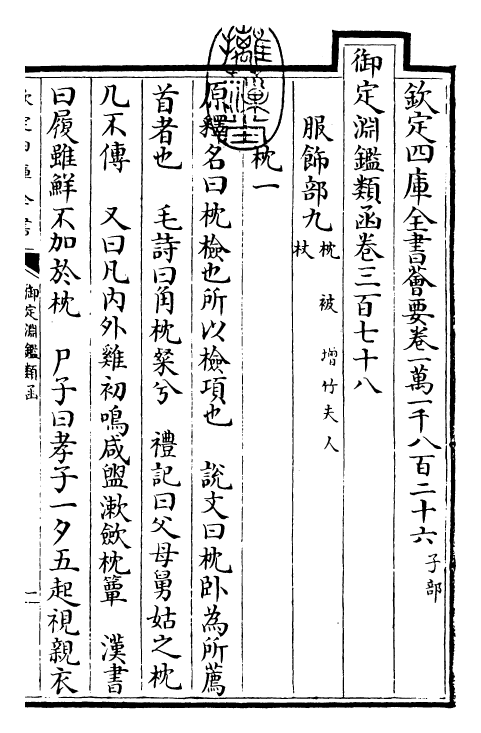 欽定四庫全書薈要卷一萬一千八百二十六子部
御定淵鑑類函卷三百七十八
服飾部九枕 被 增竹夫人 杖
枕一
原釋名曰枕檢也所以檢項也 說文曰枕卧為所薦
首者也 毛詩曰角枕粲兮 禮記曰父母舅姑之枕
几不傳 又曰凡內外雞初鳴咸盥漱歛枕簟 漢書
曰履雖鮮不加於枕 尸子曰孝子一夕五起視親衣
御定淵鑑類函